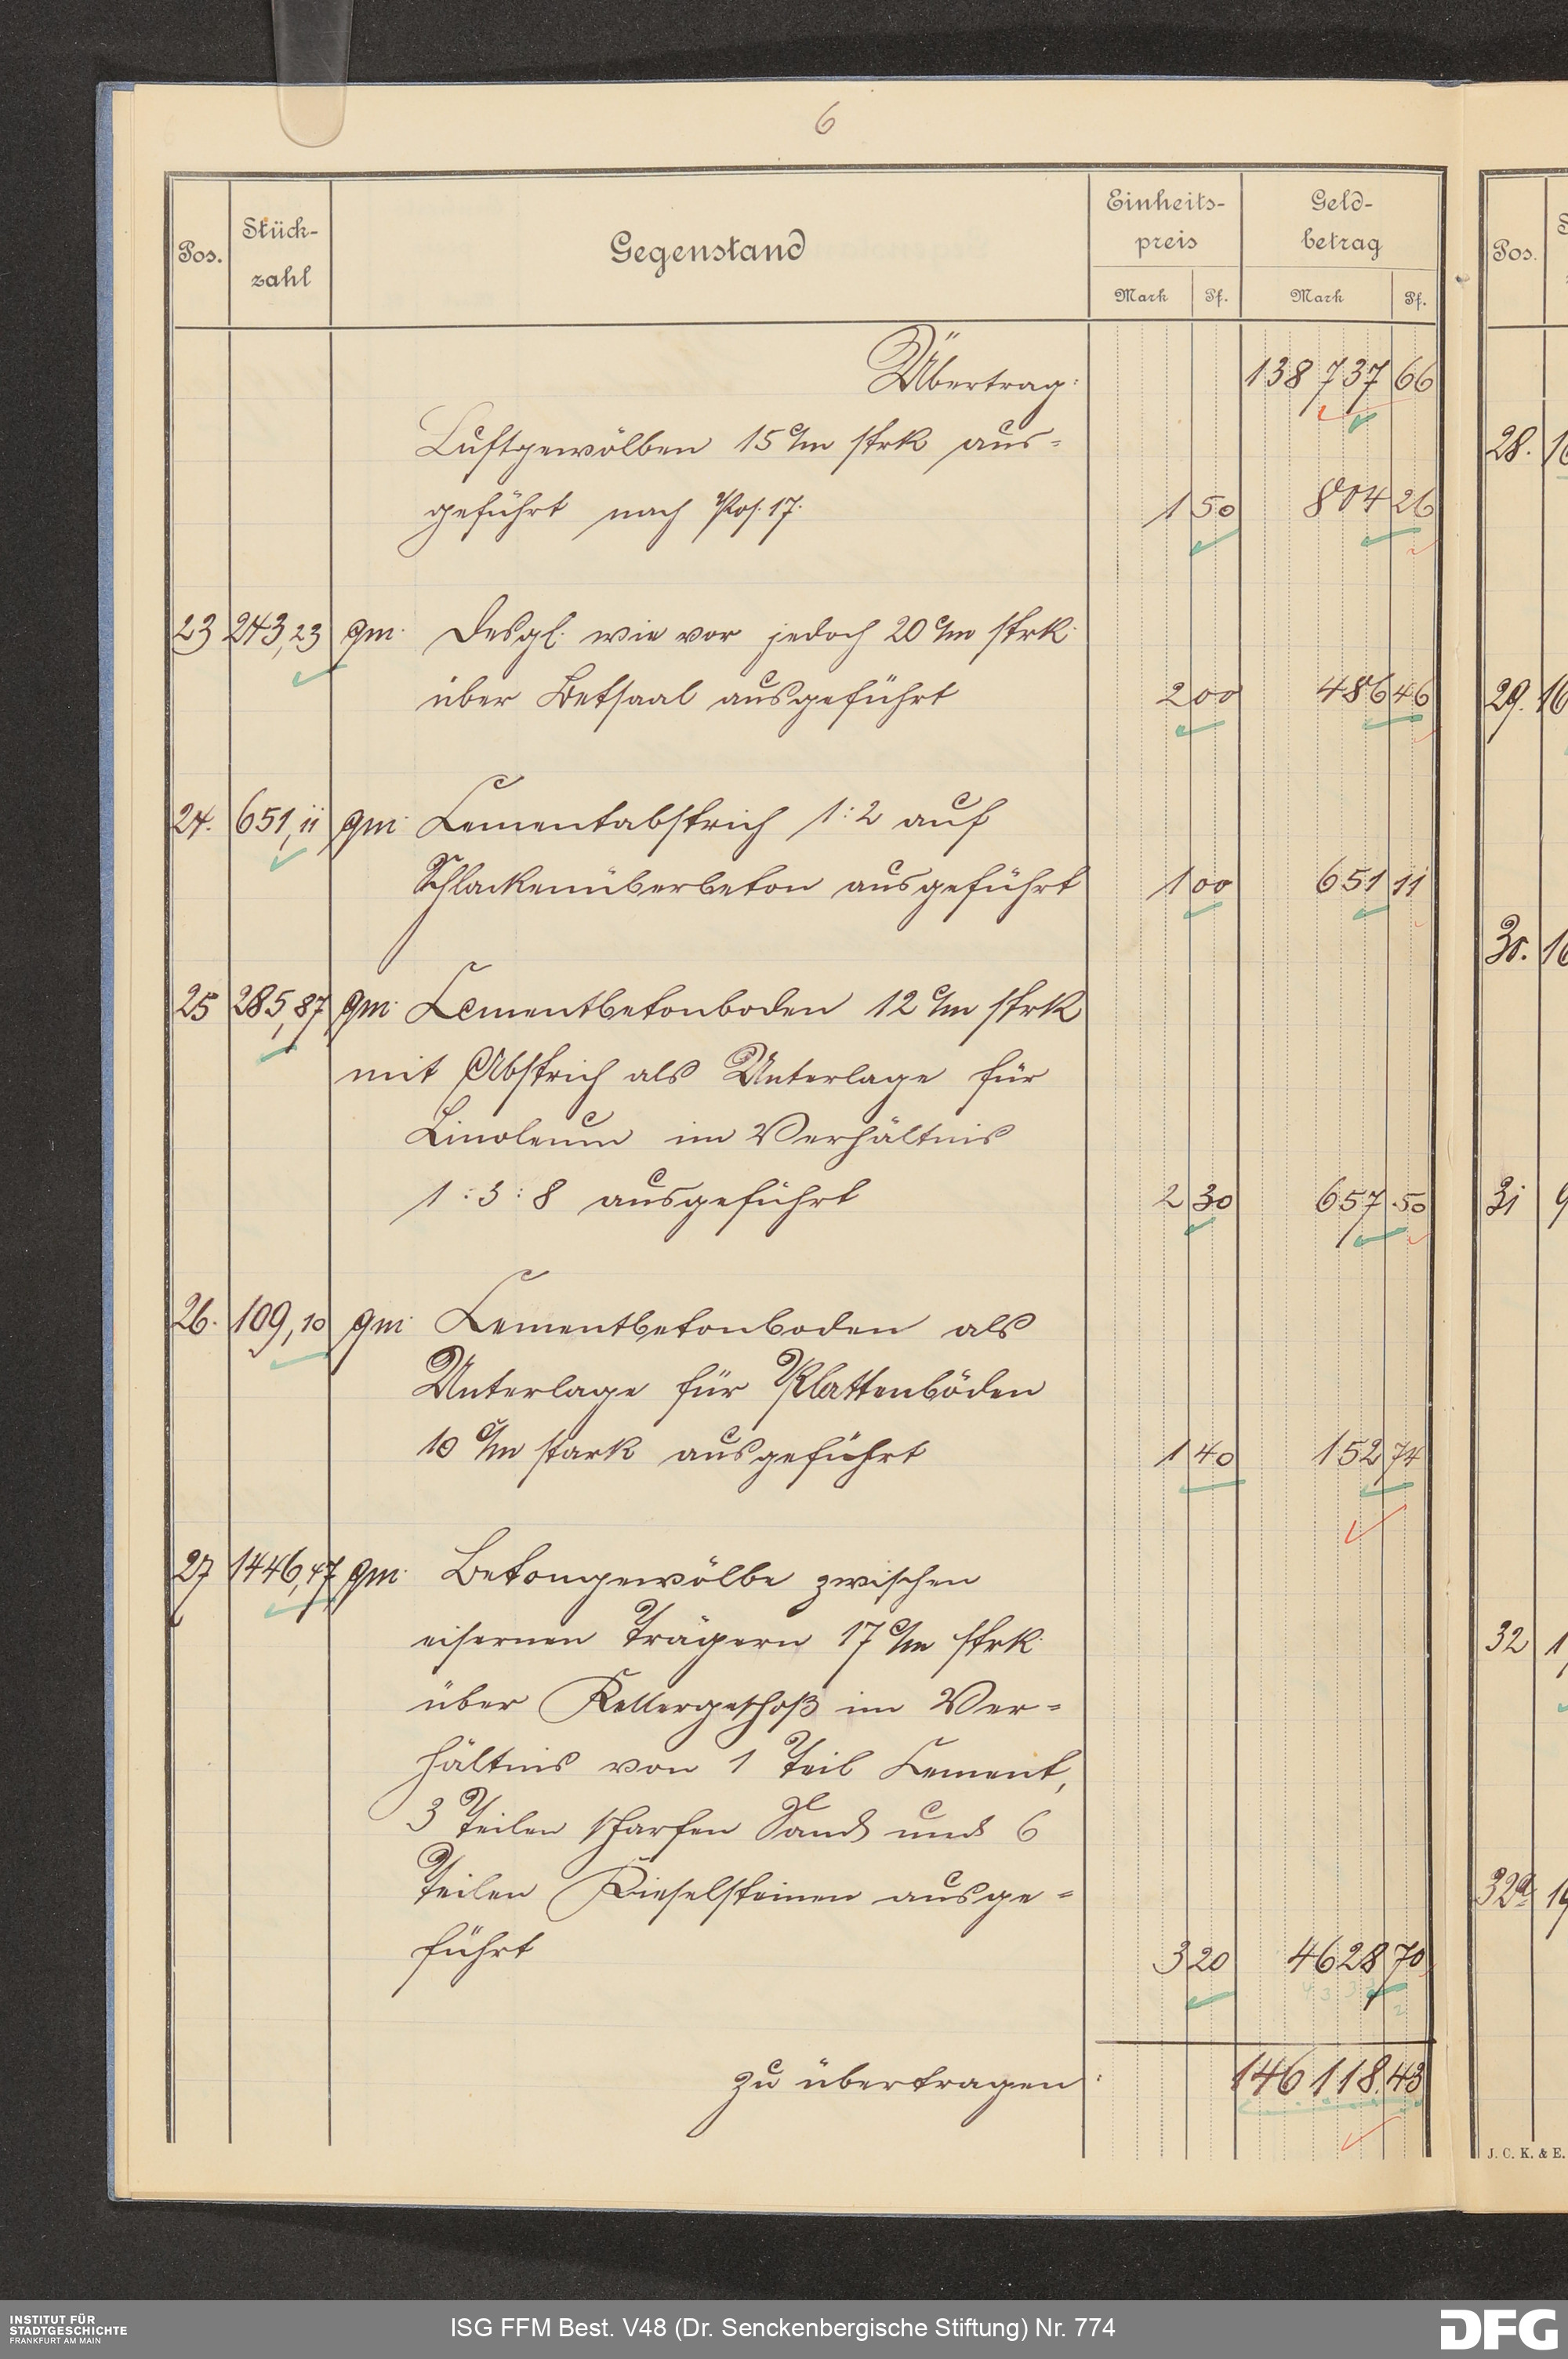 6
Pos. Stück-zahl Gegenstand Einheits-preis Geld-betrag
Mark Pf. Mark Pf.
Übertrag: 138 737 66
Luftgewölben 15 c/m strk aus-
geführt nach Pos. 17. 1 50 804 26
23 243,23 qm. Desgl. wie vor jedoch 20 c/m strk.
über Betsaal ausgeführt 2 00 486 46
24. 651,11 qm. Cementabstrich 1:2 auf
Schlackenüberbeton ausgeführt 1 00 651 11
25 285,87 qm. Cementbetonboden 12 c/m strk
mit Abstrich als Unterlage für
Linoleum im Verhältnis
1:3:8 ausgeführt 2 30 657.50
26. 109,10 qm. Cementbetonboden als
Unterlage für Plattenböden
10 c/m stark ausgeführt 1 40 152 74
27 1446,47 qm. Betongewölbe zwischen
eisernen Trägern 17 c/m strk.
über Kellergeschoß im Ver-
hältnis von 1 Teil Cement,
3 Teilen scharfen Sand und 6
Teilen Kieselsteinen ausge-
führt 3 20 4628 70
zu übertragen: 146 118.43
Pos.
28.
29.
30.
31
32
32a
J. C. K. & E.
INSTITUT FÜR
STADTGESCHICHTE
FRANKFURT AM MAIN
ISG FFM Best. V48 (Dr. Senckenbergische Stiftung) Nr. 774
DFG